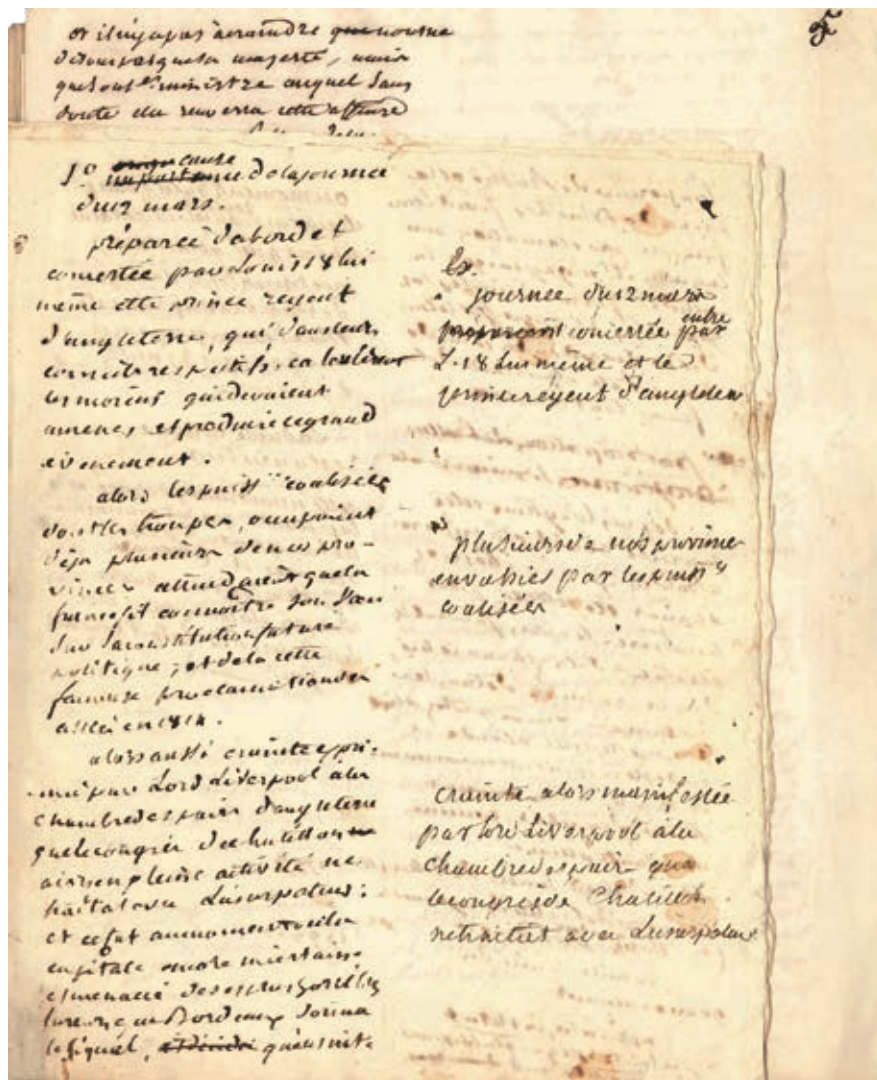 et il n'y a pas à craindre que nou
sa majesté, mais
ministre auquel sans
doute elle renverra cette affaire
1° cause de la journée
du 12 mars.
préparée d'abord et
concertée par Louis 18 lui
même et le prince regent
d'angleterre, qui dans leurs
comités respectifs,
les moiens qui devaient
amener et produire ce grand
evenement.
alors les puiss coalisées
dont les troupes, occupaient
déja plusieurs de nos pro-
vinces attendaient que la
france fit connoitre son
sur sa constitution future
politique, et de la cette
fameuse proclamation
en 1814.
alors aussi crainte expri-
mée par Lord Liverpool à la
chambre des pairs d'angleterre
que le congrès de chatillon
en pleine activité ne
traitat avec L'usurpateur;
et ce fut au moment où la
capitale encore incertaine
et menacée
que Bordeaux donna
le signal, qu'ensuite
journée du 12 mars
concertée entre par
L. 18 lui même et le
prince regent d'angleter
plusieurs de nos provinces
envahies par les puiss
coalisées
crainte alors manifestée
par lord Liverpool à la
chambre des pairs que
le congrès de Chatillon
ne traitat avec L'usurpateur